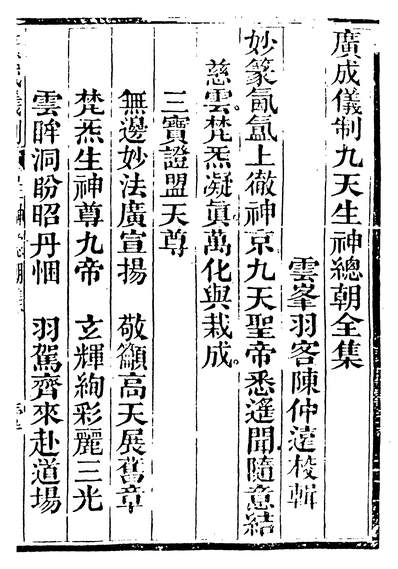 廣成儀制九天生神總朝全集
雲峯羽客陳仲遠校輯
妙篆氤氳上徹神京九天聖帝悉遙聞隨意結
慈雲。梵炁凝眞萬化與栽成。
三寶證盟天尊
無邊妙法廣宣揚　敬籲高天展舊章
梵炁生神尊九帝　玄輝絢彩麗三光
雲眸洞盼昭丹悃　羽駕齊來赴道場